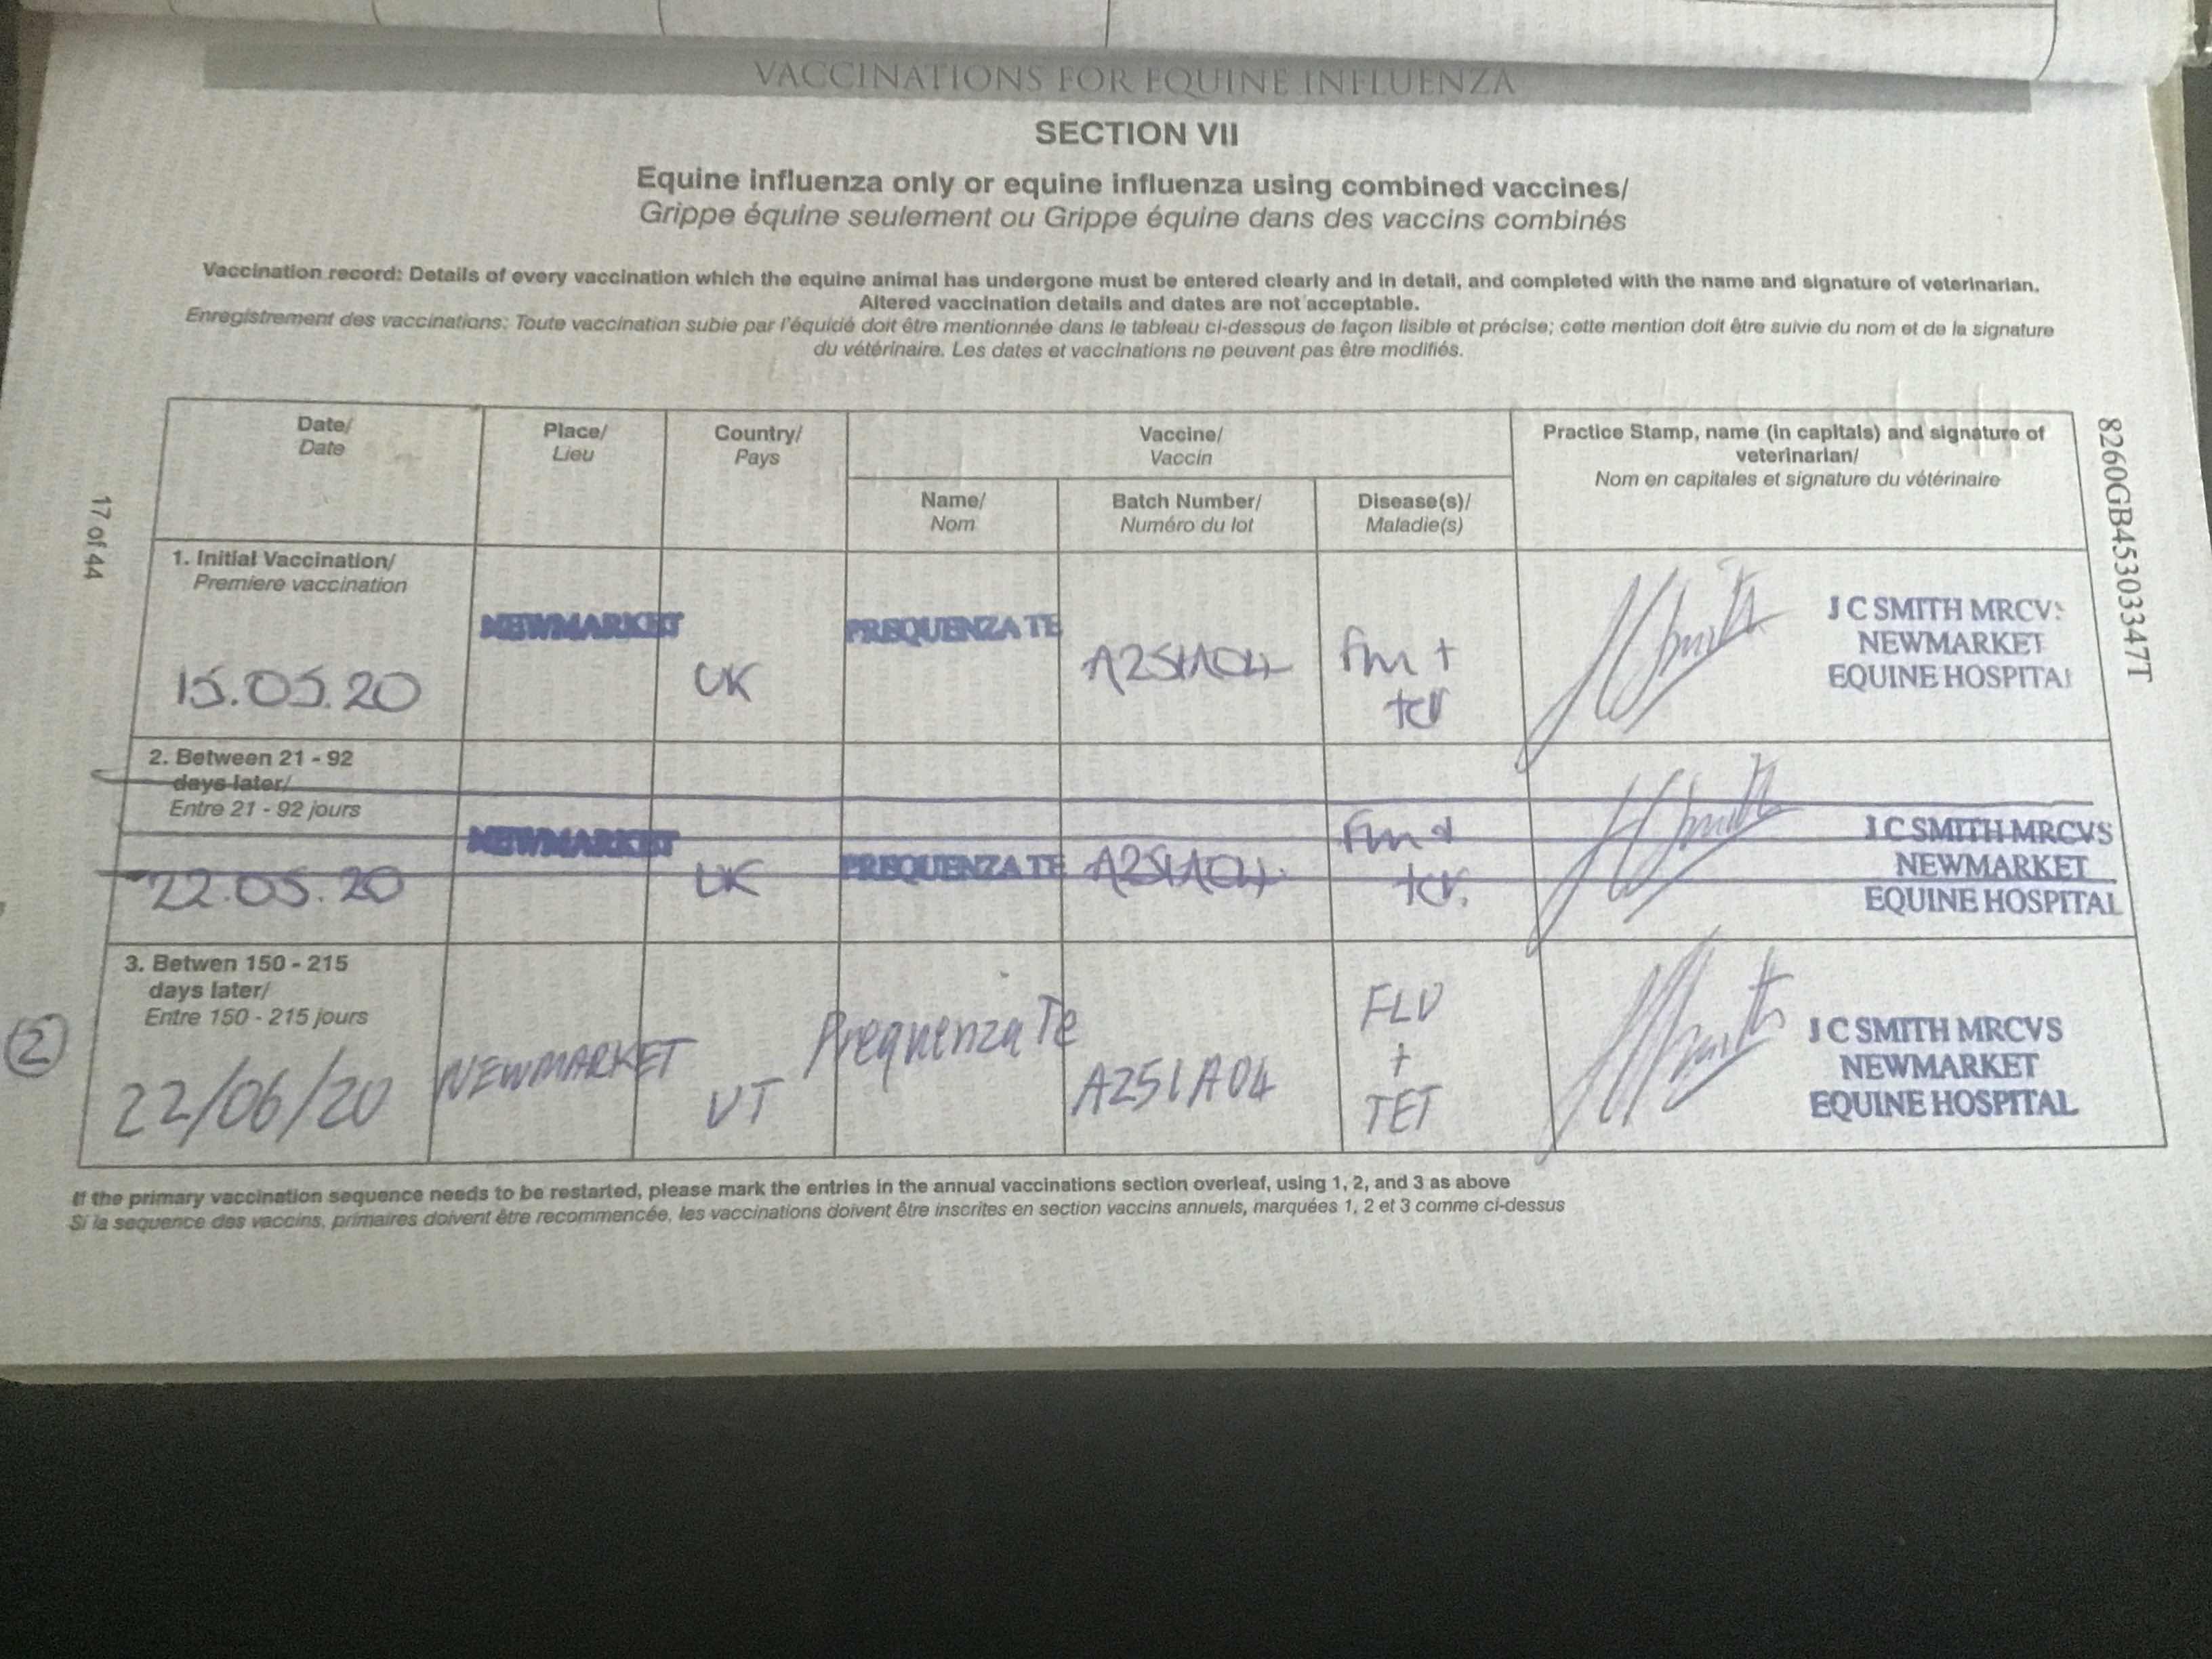 VACCINATIONS FOR EQUINE INFLUENZA
SECTION VII
Equine influenza only or equine influenza using combined vaccines/
Grippe équine seulement ou Grippe équine dans des vaccins combinés
Vaccination record: Details of every vaccination which the equine animal has undergone must be entered clearly and in detail, and completed with the name and signature of veterinarian.
Altered vaccination details and dates are not acceptable.
Enregistrement des vaccinations: Toute vaccination subie par l'équidé doit être mentionnée dans le tableau ci-dessous de façon lisible et précise; cette mention doit être suivie du nom et de la signature
du vétérinaire. Les dates et vaccinations ne peuvent pas être modifiés.
Date/
Date
Place/
Lieu
Country/
Pays
Vaccine/
Vaccin
Practice Stamp, name (in capitals) and signature of
veterinarian/
Nom en capitales et signature du vétérinaire
Name/
Nom
Batch Number/
Numéro du lot
Disease(s)/
Maladie(s)
17 of 44
8260GB45303347T
1. Initial Vaccination/
Premiere vaccination
15.05.20
NEWMARKET
UK
PREQUENZA TE
A251A04
J C SMITH MRCVS
NEWMARKET
EQUINE HOSPITAL
2. Between 21 - 92
days later/
Entre 21 - 92 jours
22.05.20
NEWMARKET
UK
PREQUENZA TE
A251A04
J C SMITH MRCVS
NEWMARKET
EQUINE HOSPITAL
3. Betwen 150 - 215
days later/
Entre 150 - 215 jours
2
22/06/20
NEWMARKET
Prequenza Te
A251A04
FLU
+
TET
J C SMITH MRCVS
NEWMARKET
EQUINE HOSPITAL
If the primary vaccination sequence needs to be restarted, please mark the entries in the annual vaccinations section overleaf, using 1, 2, and 3 as above
Si la sequence des vaccins, primaires doivent être recommencée, les vaccinations doivent être inscrites en section vaccins annuels, marquées 1, 2 et 3 comme ci-dessus